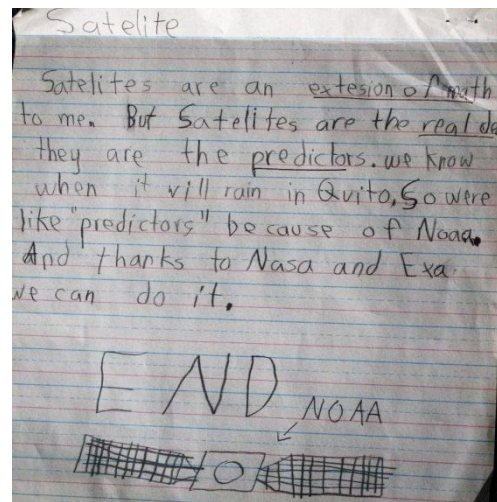 Satelite
Satelites are an extesion of math
to me. But Satelites are the real de
they are the predictors. we know
when it vill rain in Quito, So were
like "predictors" because of Noaa.
And thanks to Nasa and Exa
we can do it.
END
NOAA